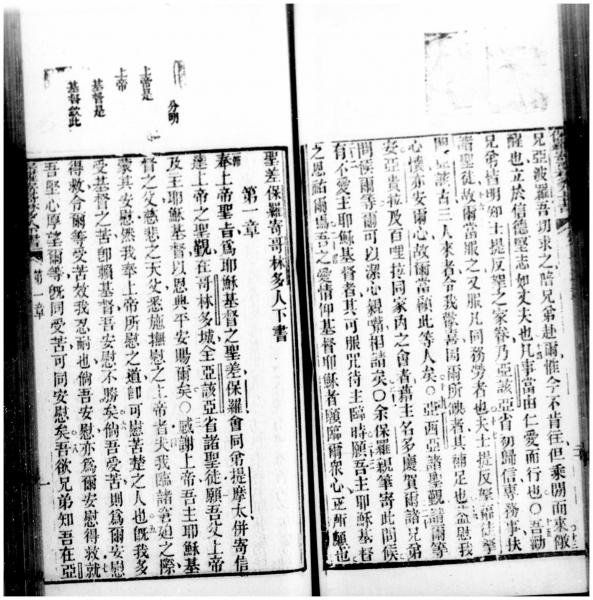 兄亞波羅吾切求之陪兄弟赴爾惟今不肯往但乘閒而來儆
醒也立於信德堅志如丈夫也凡事當由仁愛而行也〇吾勸
兄弟情明知士提反拏之家眷乃亞該亞省初歸信專務事扶
諸聖徒故爾當服之又服凡同務勞者也夫士提反拏
三人來者令我歡喜因爾所缺者其補足也蓋慰我
心懷亦安爾心故爾當顧此等人矣〇亞西亞諸聖觀請爾等
安亞貴拉及百哩拉同家內之會者靠主名多慶賀爾諸兄弟
問候爾等爾可以潔心親嘴相請矣〇余保羅親筆寄此問候
有不愛主耶穌基督者其可服咒待主臨時願吾主耶穌基督
之恩祐爾焉吾之愛情仰基督耶穌者願臨爾眾心正所願也
聖差保羅寄哥林多人下書
第一章
奉上帝聖旨為耶穌基督之聖差保羅會同弟提摩太併寄信
達上帝之聖觀在哥林多城全亞該亞省諸聖徒願吾父上帝
及主耶穌基督以恩典平安賜爾矣〇感謝上帝吾主耶穌基
督之父慈悲之天父悉施撫慰之上帝者夫我臨諸窘迫之際
蒙其安慰然我奉上帝所慰之道卽可慰苦楚之人也旣我多
受基督之苦卽賴基督吾安慰不勝矣倘吾受苦則為爾安慰
得救令爾等受苦效我忍耐也倘吾安慰亦為爾安慰得救就
吾堅心厚望爾等旣同受苦可同安慰矣吾欲兄弟知吾在亞
分明
上帝是
上帝
基督是
基督欽此
第一章